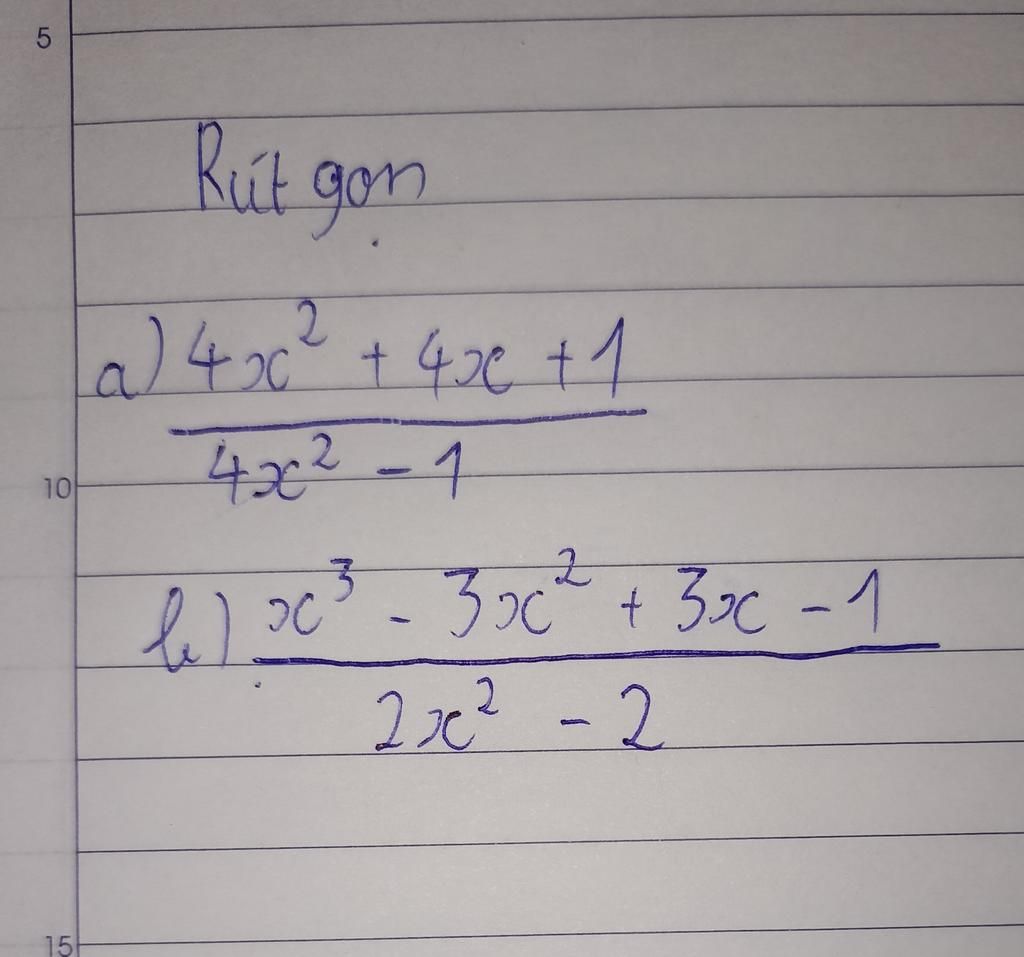 5
Rút gọn
a) 4x² + 4x + 1
4x² - 1
10
b) x³ - 3x² + 3x - 1
2x² - 2
15